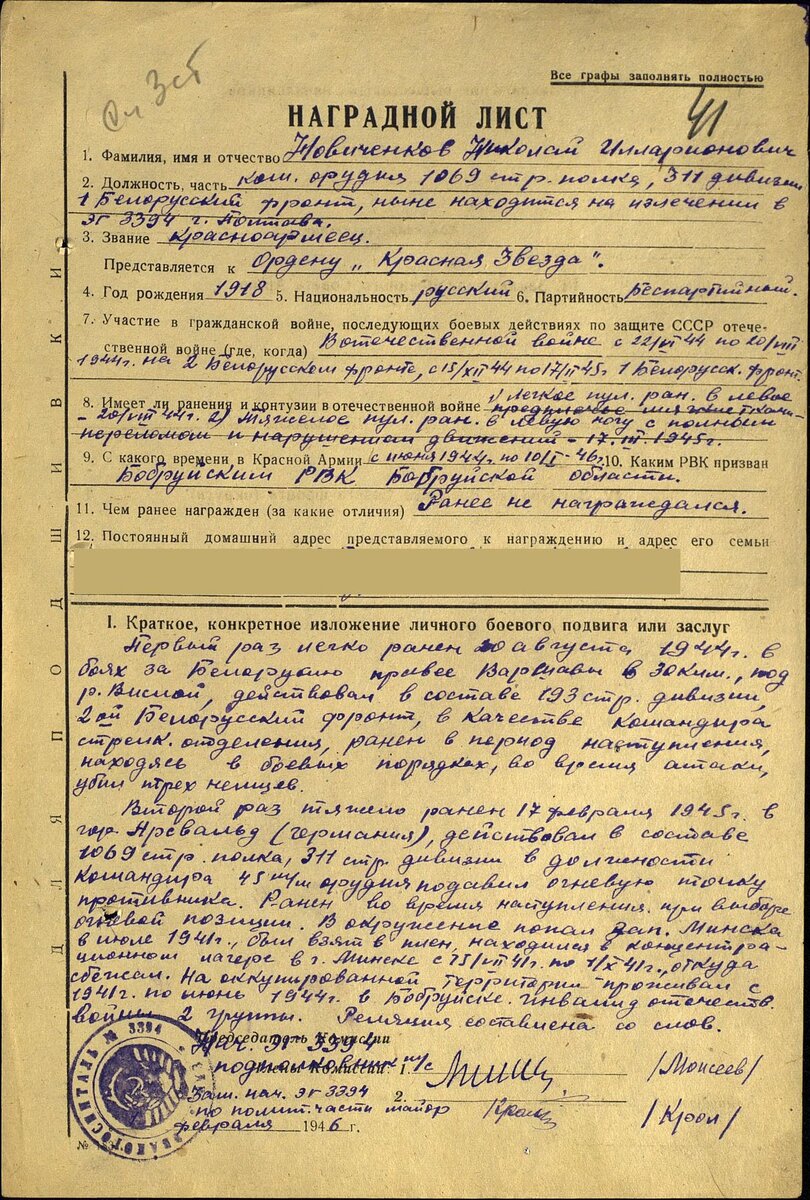 См 3сб
Все графы заполнять полностью
41
НАГРАДНОЙ ЛИСТ
1. Фамилия, имя и отчество Новиченков Николай Илларионович
2. Должность, часть ком. орудия 1069 стр. полка, 311 дивизии
1 Белорусский фронт, ныне находится на излечении в
эг 3394 г. Полтава.
3. Звание красноармеец.
Представляется к Ордену „Красная Звезда".
4. Год рождения 1918 5. Национальность русский 6. Партийность Беспартийный.
7. Участие в гражданской войне, последующих боевых действиях по защите СССР отече-
ственной войне (где, когда) В отечественной войне с 22/VI 44 по 20/VIII
1944г. на 2 Белорусском фронте, с 15/XII 44 по 17/II 45г 1 Белорусск. фронт.
8. Имеет ли ранения и контузии в отечественной войне 1) Легкое пул. ран. в левое
- 20/VIII 44г. 2) Тяжелое пул. ран. в левую ногу с полным
переломом и нарушением движений - 17.III.1945г.
9. С какого времени в Красной Армии с июня 1944г. по 10/I-46г. 10. Каким РВК призван
Бобруйским РВК Бобруйской области.
11. Чем ранее награжден (за какие отличия) Ранее не награждался.
12. Постоянный домашний адрес представляемого к награждению и адрес его семьи
I. Краткое, конкретное изложение личного боевого подвига или заслуг
Первый раз легко ранен 20 августа 1944г. в
боях за Белорусию правее Варшавы в 30 клм., под
р. Вислой, действовал в составе 193 стр. дивизии,
2ой Белорусский фронт, в качестве командира
стрелк. отделения, ранен в период наступления,
находясь в боевых порядках, во время атаки,
убил трех немцев.
Второй раз тяжело ранен 17 февраля 1945г. в
гор. Арсвальд (Германия), действовал в составе
1069 стр. полка, 311 стр. дивизии в должности
командира 45 м/м орудия подавил огневую точку
противника. Ранен во время наступления при выборе
огневой позиции. В окружение попал зап. Минска
в июле 1941г., был взят в плен, находился в концентра-
ционном лагере в г. Минске с 15/VII 41г. по 1/X 41г., откуда
сбежал. На оккупированной территории проживал с
1941г. по июнь 1944г. в Бобруйске. Инвалид отечеств.
войны 2 группы. Реляция составлена со слов.
Председатель Комиссии
Нач. ЭГ 3394
подполковник м/с
Члены Комиссии: 1. /Моисеев/
Зам. нач. эг 3394
по полит. части майор 2. /Крол/
февраля 1946 г.
ЭВАКОГОСПИТАЛЬ № 3394
ДЛЯ ПОДШИВКИ